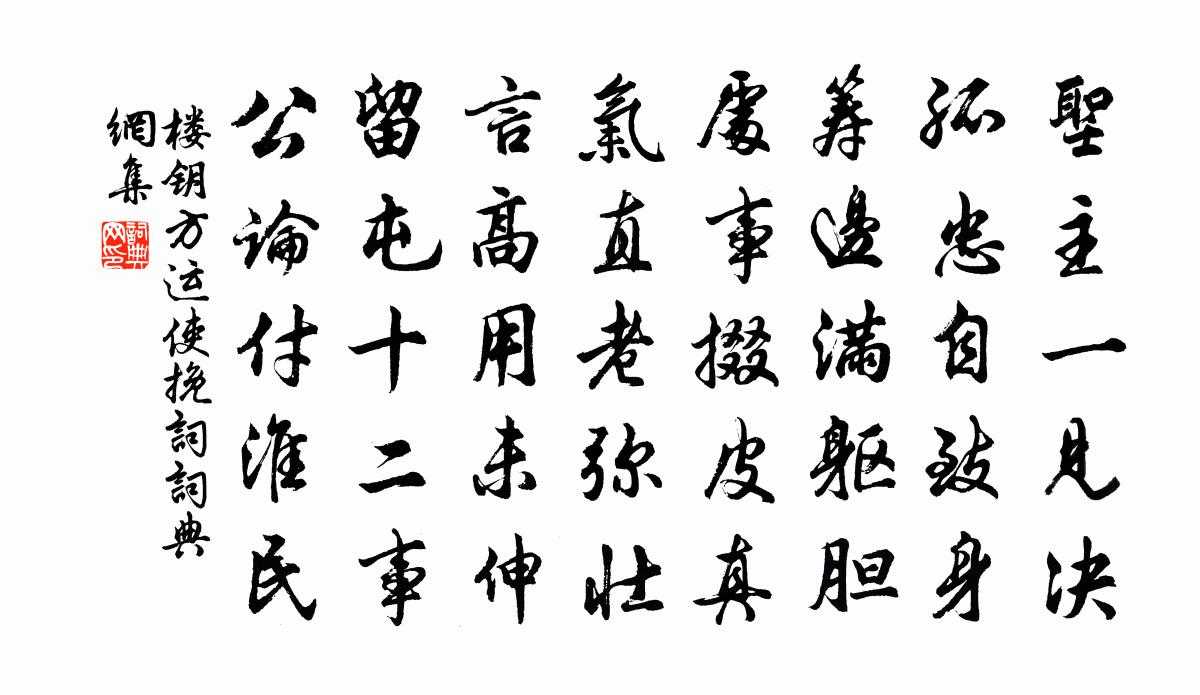 聖主一見決
孤忠自致身
筹邊滿躯胆
處事掇皮真
氣直老弥壮
言高用未伸
留屯十二事
公論付淮民
楼钥方运使挽詞詞典
網集
詞典
网印